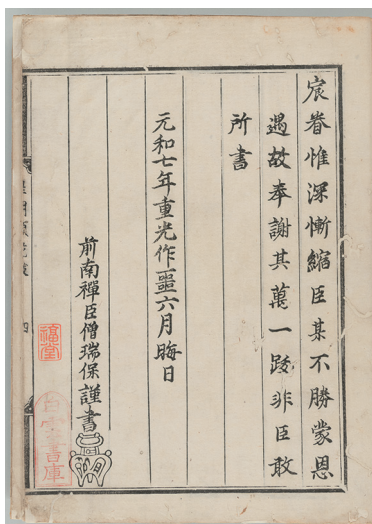 宸眷惟深慚縮臣某不勝蒙恩
遇故奉謝其萬一跋非臣敢
所書
元和七年重光作噩六月晦日
前南禪臣僧瑞保謹書
福堂
白雲書庫
四